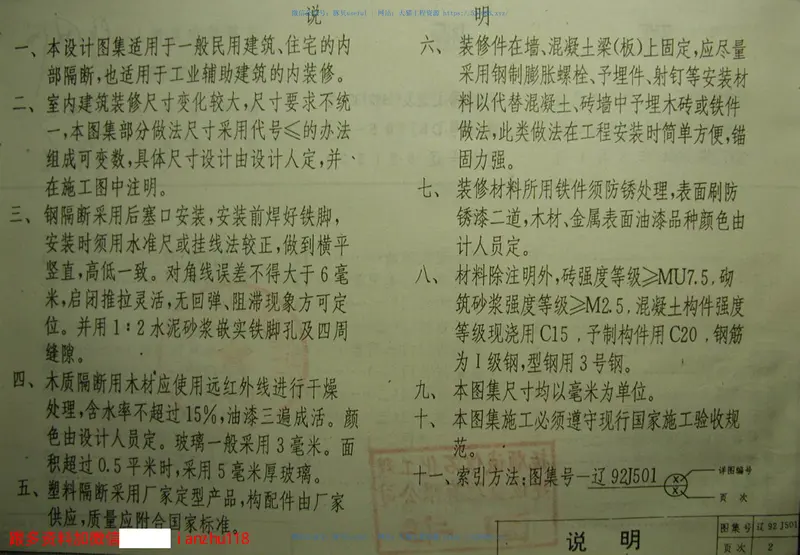 说 明
一、本设计图集适用于一般民用建筑、住宅的内
部隔断,也适用于工业辅助建筑的内装修。
二、室内建筑装修尺寸变化较大,尺寸要求不统
一,本图集部分做法尺寸采用代号≤的办法
组成可变数,具体尺寸设计由设计人定,并
在施工图中注明。
三、钢隔断采用后塞口安装,安装前焊好铁脚,
安装时须用水准尺或挂线法较正,做到横平
竖直,高低一致。对角线误差不得大于6毫
米,启闭推拉灵活,无回弹、阻滞现象方可定
位。并用1:2水泥砂浆嵌实铁脚孔及四周
缝隙。
四、木质隔断用木材应使用远红外线进行干燥
处理,含水率不超过15%,油漆三遍成活。颜
色由设计人员定。玻璃一般采用3毫米。面
积超过0.5平米时,采用5毫米厚玻璃。
五、塑料隔断采用厂家定型产品,构配件由厂家
供应,质量应附合国家标准。
六、装修件在墙、混凝土梁(板)上固定,应尽量
采用钢制膨胀螺栓、予埋件、射钉等安装材
料以代替混凝土、砖墙中予埋木砖或铁件
做法,此类做法在工程安装时简单方便,锚
固力强。
七、装修材料所用铁件须防锈处理,表面刷防
锈漆二道,木材、金属表面油漆品种颜色由
计人员定。
八、材料除注明外,砖强度等级≥MU7.5,砌
筑砂浆强度等级≥M2.5,混凝土构件强度
等级现浇用C15,予制构件用C20,钢筋
为I级钢,型钢用3号钢。
九、本图集尺寸均以毫米为单位。
十、本图集施工必须遵守现行国家施工验收规
范。
十一、索引方法:图集号—辽92J501
详图编号
页 次
说 明
图集号 辽92J501
页次 2